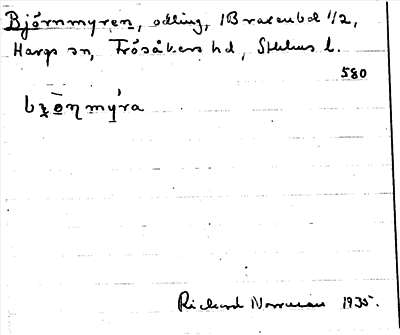 Björnmyren, odling, 1 Brasenbol 1/2,
Hargs sn, Frösåkers hd, Sthlms l.
580
Richard Norrman 1935.